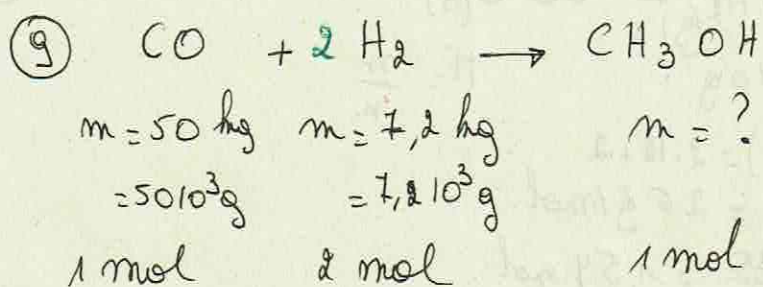 9 CO + 2 H2 → CH3OH
m = 50 kg m = 7,2 kg m = ?
= 50 10³g = 7,2 10³g
1 mol 2 mol 1 mol